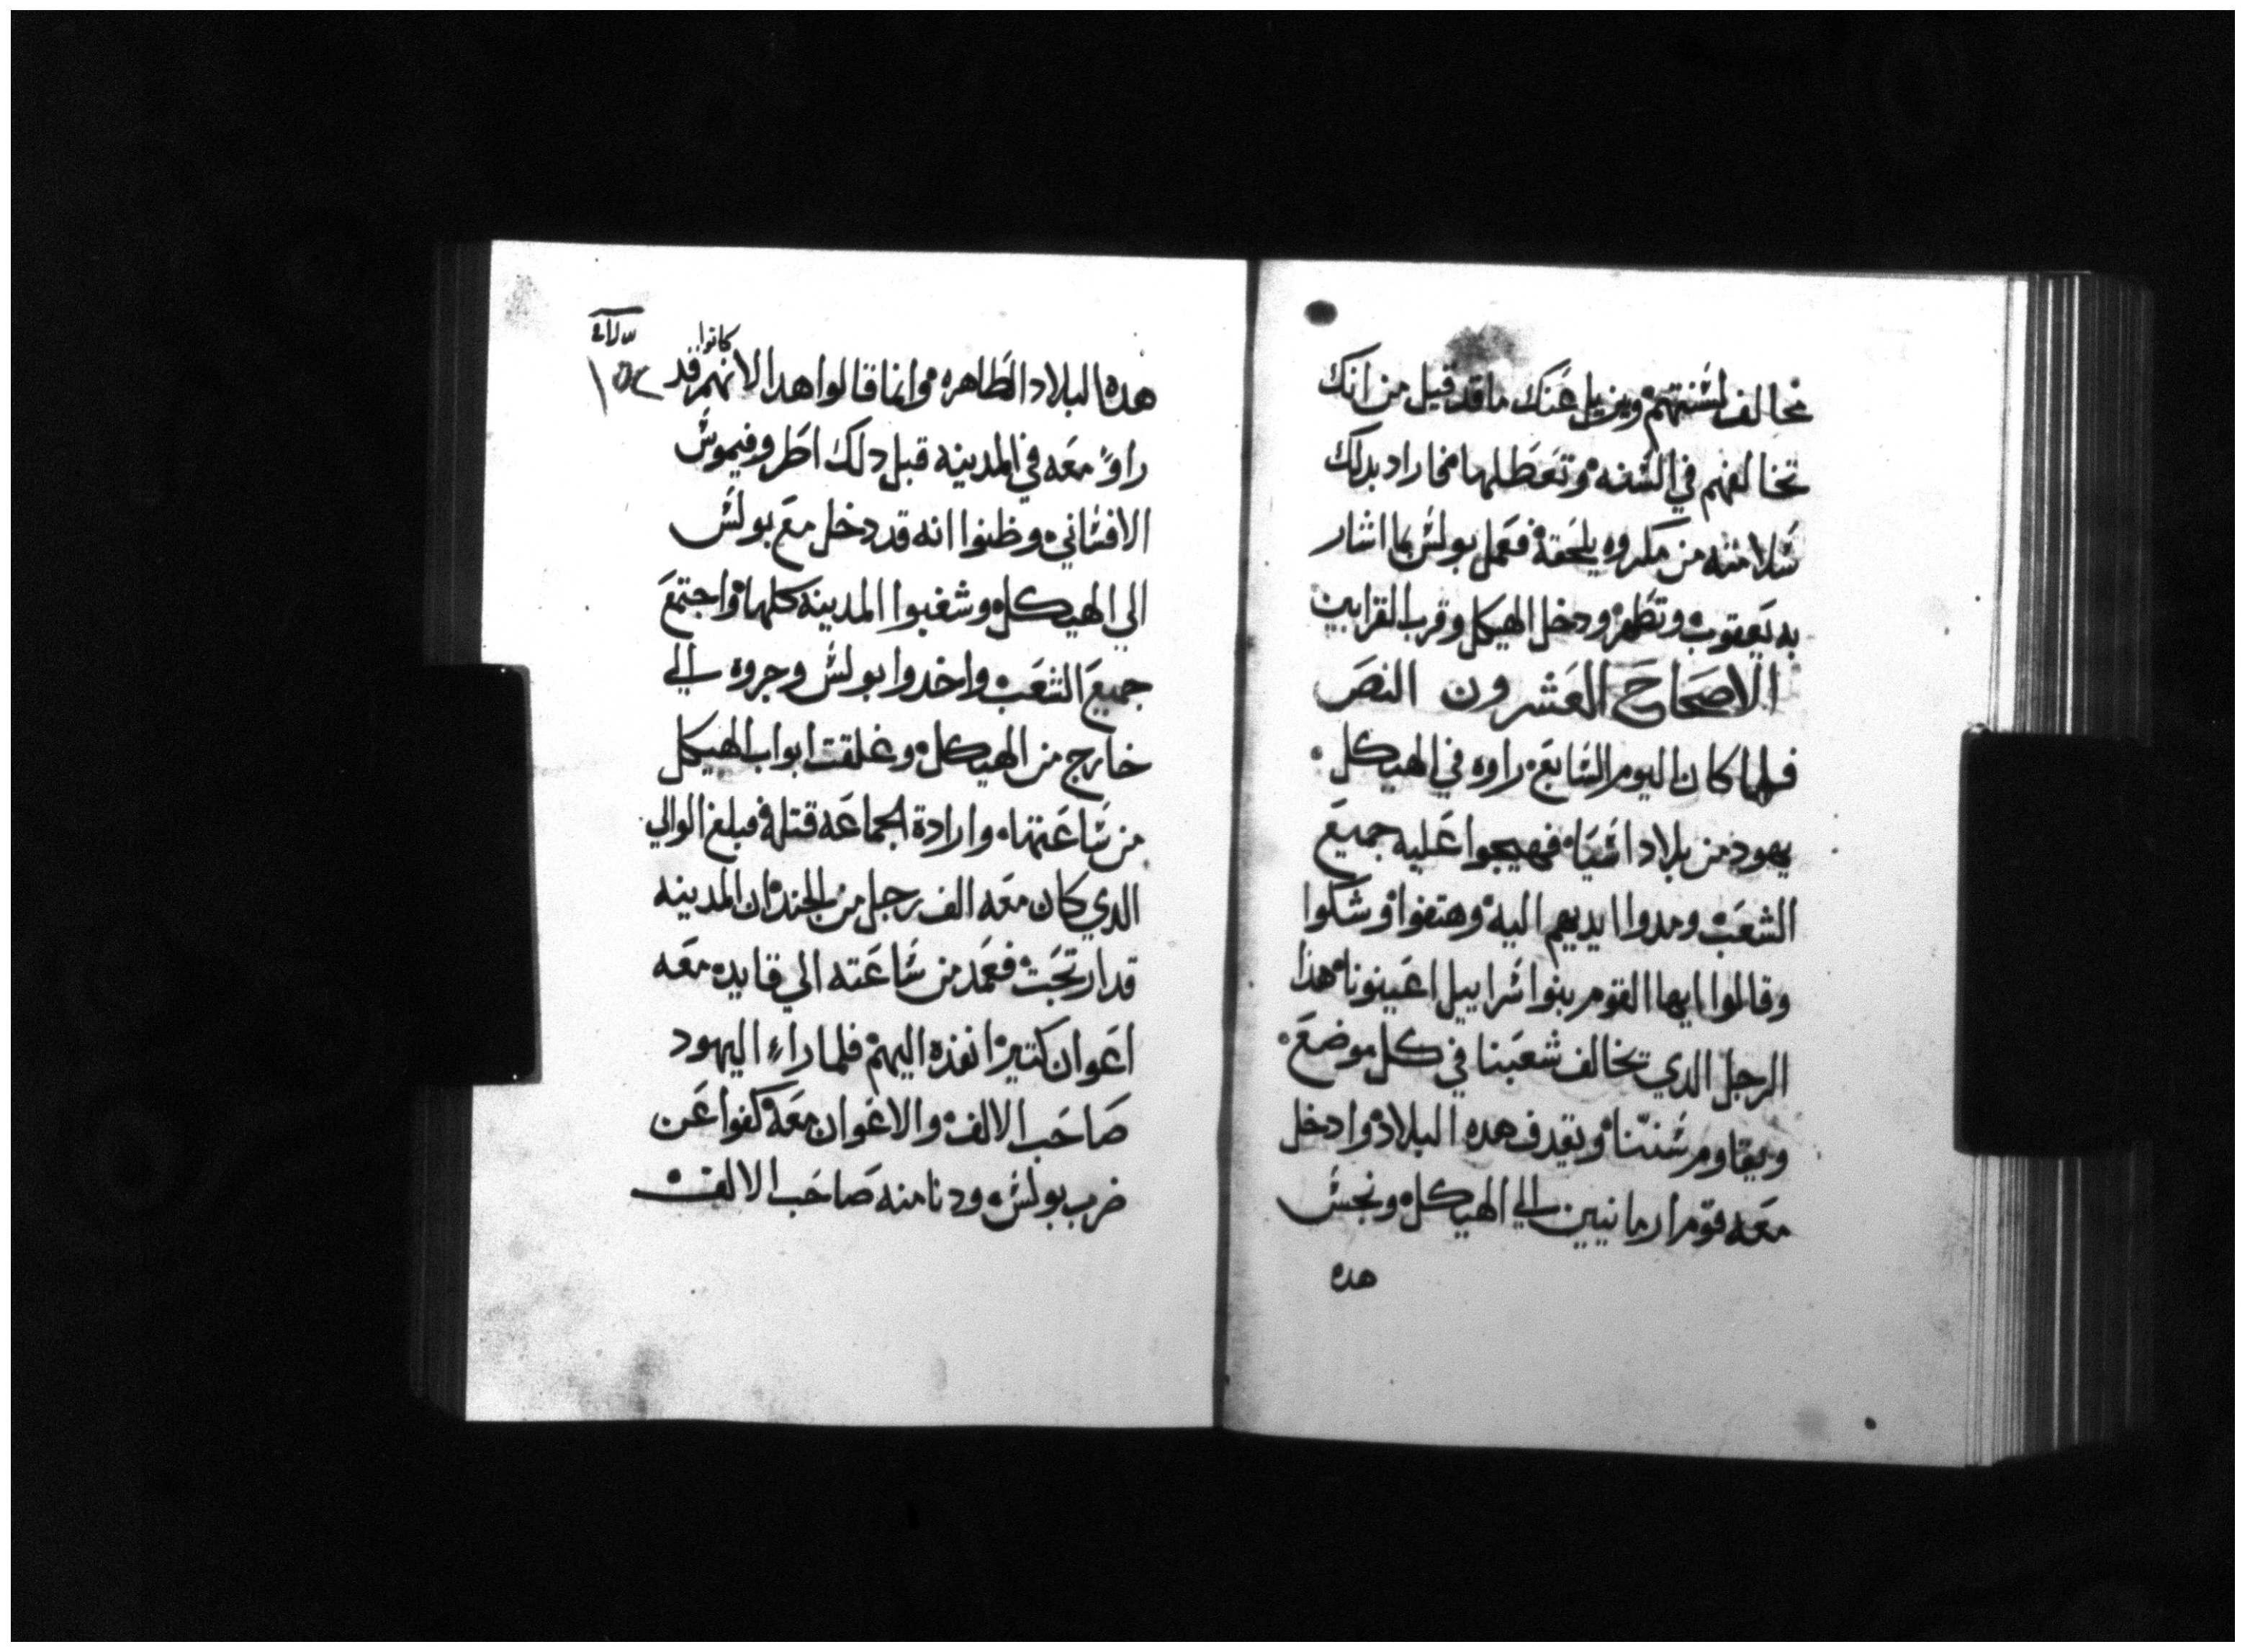 نخالف لسنتهم ويزيل عنك ما قد قيل من انك
تخالفهم في السنه وتعطلها فاراد بدلك
سلامته من مكروه يلحقه فعمل بولس بما اشار
به يعقوب وتطهر ودخل الهيكل وقرب القرابين
الاصحاح العشرون النص
فلما كان اليوم السابع راوه في الهيكل
يهود من بلاد اسيا فهيجوا عليه جميع
الشعب ومدوا ايديهم اليه وهتفوا وشكوا
وقالوا ايها القوم بنوا سراييل اعينونا هذا
الرجل الدي تخالف شعبنا في كل موضع
ويقاوم سنتنا ويقدف هده البلاد وادخل
معه قوم ارمانيين الي الهيكل ونجس
هده
هده البلاد الطاهره وانما قالوا هدا لانهم كانوا قد
١٥٢
راوا معه في المدينه قبل دلك اطروفيموس
الافساني وظنوا انه قد دخل مع بولس
الي الهيكل وشغبوا المدينه كلها واجتمع
جميع الشعب واخدوا بولس وجروه الي
خارج من الهيكل وغلقت ابواب الهيكل
من ساعتها وارادة الجماعه قتله فبلغ الوالي
الدي كان معه الف رجل من الجند ان المدينه
قد ارتجت فعمد من ساعته الي قايده معه
اعوان كتير انفذه اليهم فلما راء اليهود
صاحب الالف والاعوان معه كفوا عن
ضرب بولس ودنا منه صاحب الالف